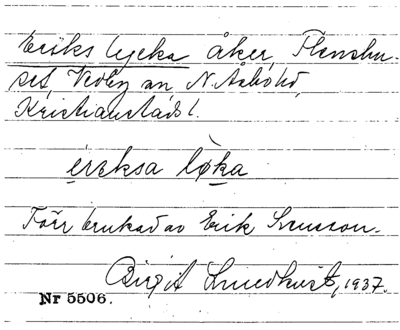 Eriks lycka åker, Flenshu-
set, Vedby sn N. Åsbo hd,
Kristianstads l.
ereksa løka
Förr brukad av Erik Svensson.
Birgit Lundkvist, 1937.
Nr 5506.